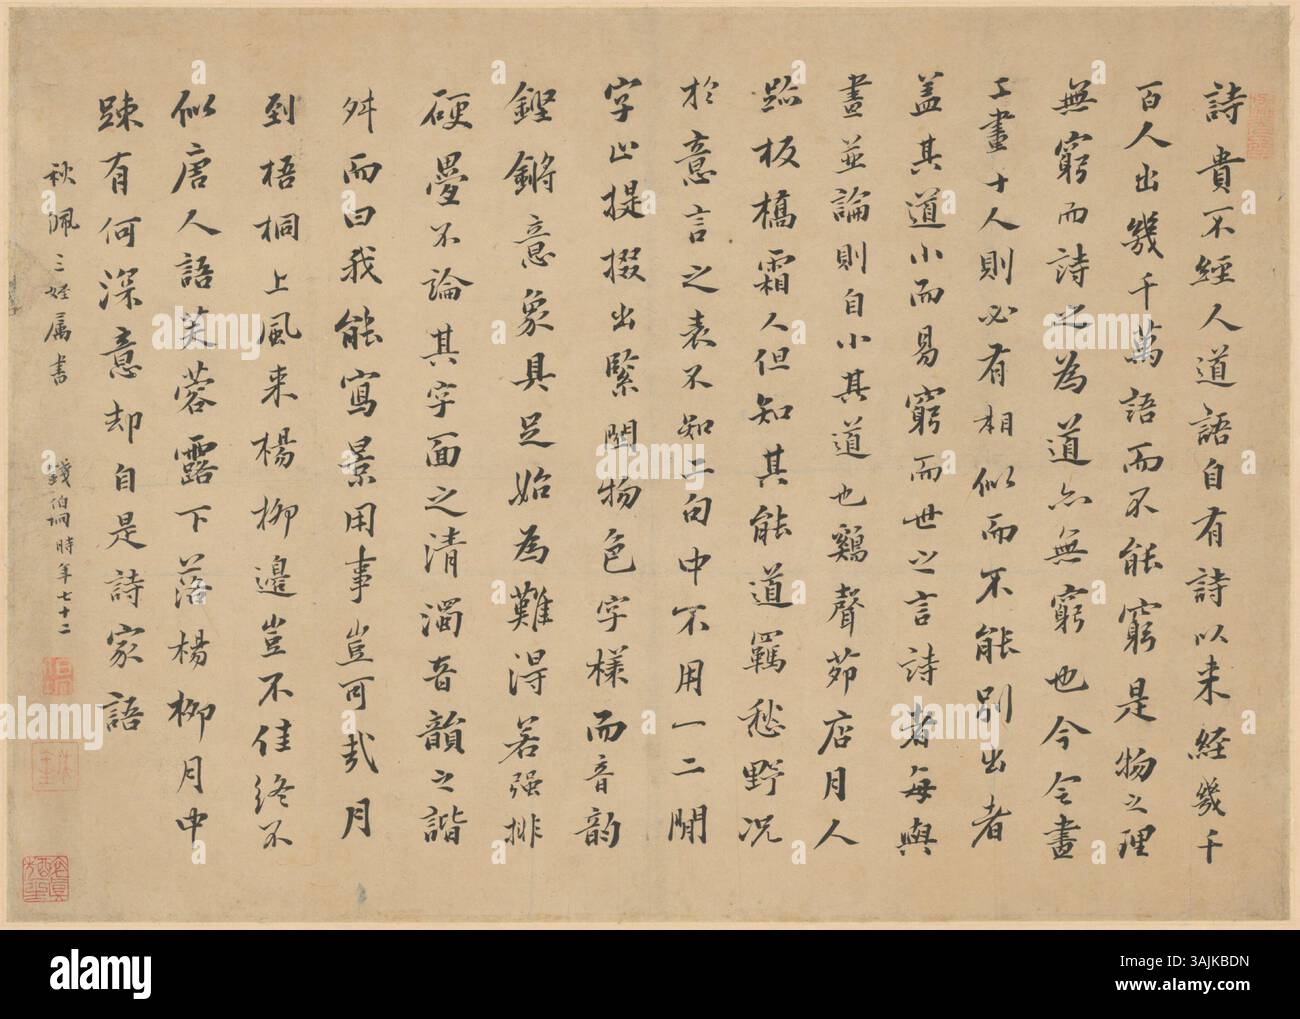 詩貴不經人道語自有詩以来經幾千
百人出幾千萬語而不能窮是物之理
無窮而詩之為道亦無窮也今令畫
工畫十人則必有相似而不能別出者
盖其道小而易窮而世之言詩者每與
畫並論則自小其道也鷄聲茆店月人
跡板橋霜人但知其能道羈愁野况
於意言之表不知二句中不用一二閒
字止提掇出緊關物色字樣而音韵
鏗鏘意象具足始為難得若强排
硬疊不論其字面之清濁音韻之諧
舛而曰我能寫景用事豈可哉月
到梧桐上風来楊柳邊豈不佳終不
似唐人語芙蓉露下落楊柳月中
踈有何深意却自是詩家語
秋佩三姪属書
錢伯坰時年七十二
alamy
Image ID: 3AJKBDN
www.alamy.com